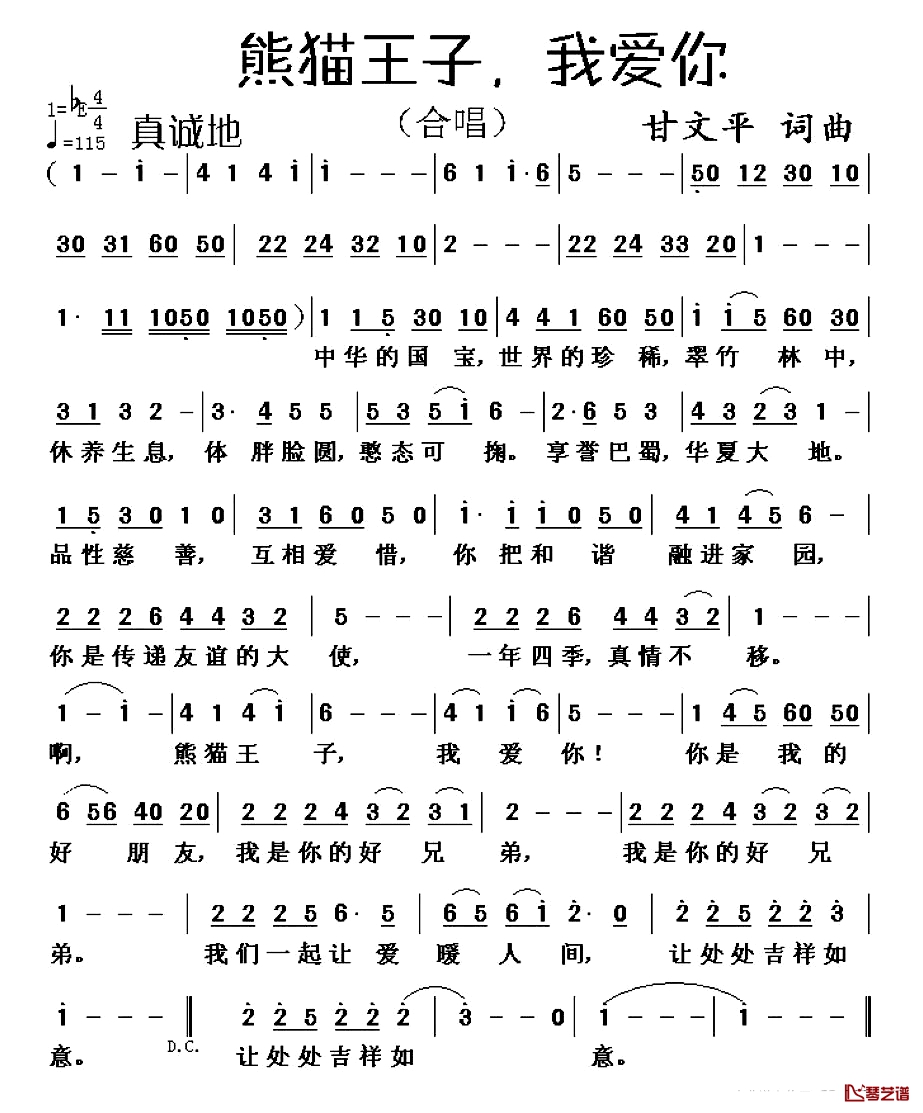 熊猫王子，我爱你
1=♭E 4/4
♩=115 真诚地 （合唱） 甘文平 词曲
( 1 - i̇ - | 4 1 4 i̇ | i̇ - - - | 6 1 i̇· 6 | 5 - - - | 5̣0 12 30 10 |
30 31 60 50 | 22 24 32 10 | 2 - - - | 22 24 33 20 | 1 - - - |
1· 11 105̣0 105̣0 ) | 1 1 5̣ 30 10 | 4 4 1 60 50 | i̇ i̇ 5 60 30 |
中华的国宝，世界的珍稀，翠竹林中，
3 1 3 2 - | 3· 4 5 5 | 5 3 5 i̇ 6 - | 2· 6 5 3 | 4 3 2 3 1 - |
休养生息，体胖脸圆，憨态可掬。享誉巴蜀，华夏大地。
1 5̣ 3 0 1 0 | 3 1 6 0 5 0 | i̇· i̇ i̇ 0 5 0 | 4 1 4 5 6 - |
品性慈善，互相爱惜，你把和谐融进家园，
2 2 2 6 4 4 3 2 | 5 - - - | 2 2 2 6 4 4 3 2 | 1 - - - |
你是传递友谊的大使，一年四季，真情不移。
1 - i̇ - | 4 1 4 i̇ | 6 - - - | 4 1 i̇ 6 | 5 - - - | 1 4 5 60 50 |
啊，熊猫王子，我爱你！你是我的
6 56 40 20 | 2 2 2 4 3 2 3 1 | 2 - - - | 2 2 2 4 3 2 3 2 |
好朋友，我是你的好兄弟，我是你的好兄
1 - - - | 2 2 2 5 6· 5 | 6 5 6 i̇ 2̇· 0 | 2̇ 2̇ 5 2̇ 2̇ 3̇ |
弟。我们一起让爱暖人间，让处处吉祥如
i̇ - - - ‖ 2̇ 2̇ 5 2̇ 2̇ 2̇ | 3̇ - - 0 | i̇ - - - | i̇ - - - ‖
意。 D.C. 让处处吉祥如意。
琴艺谱